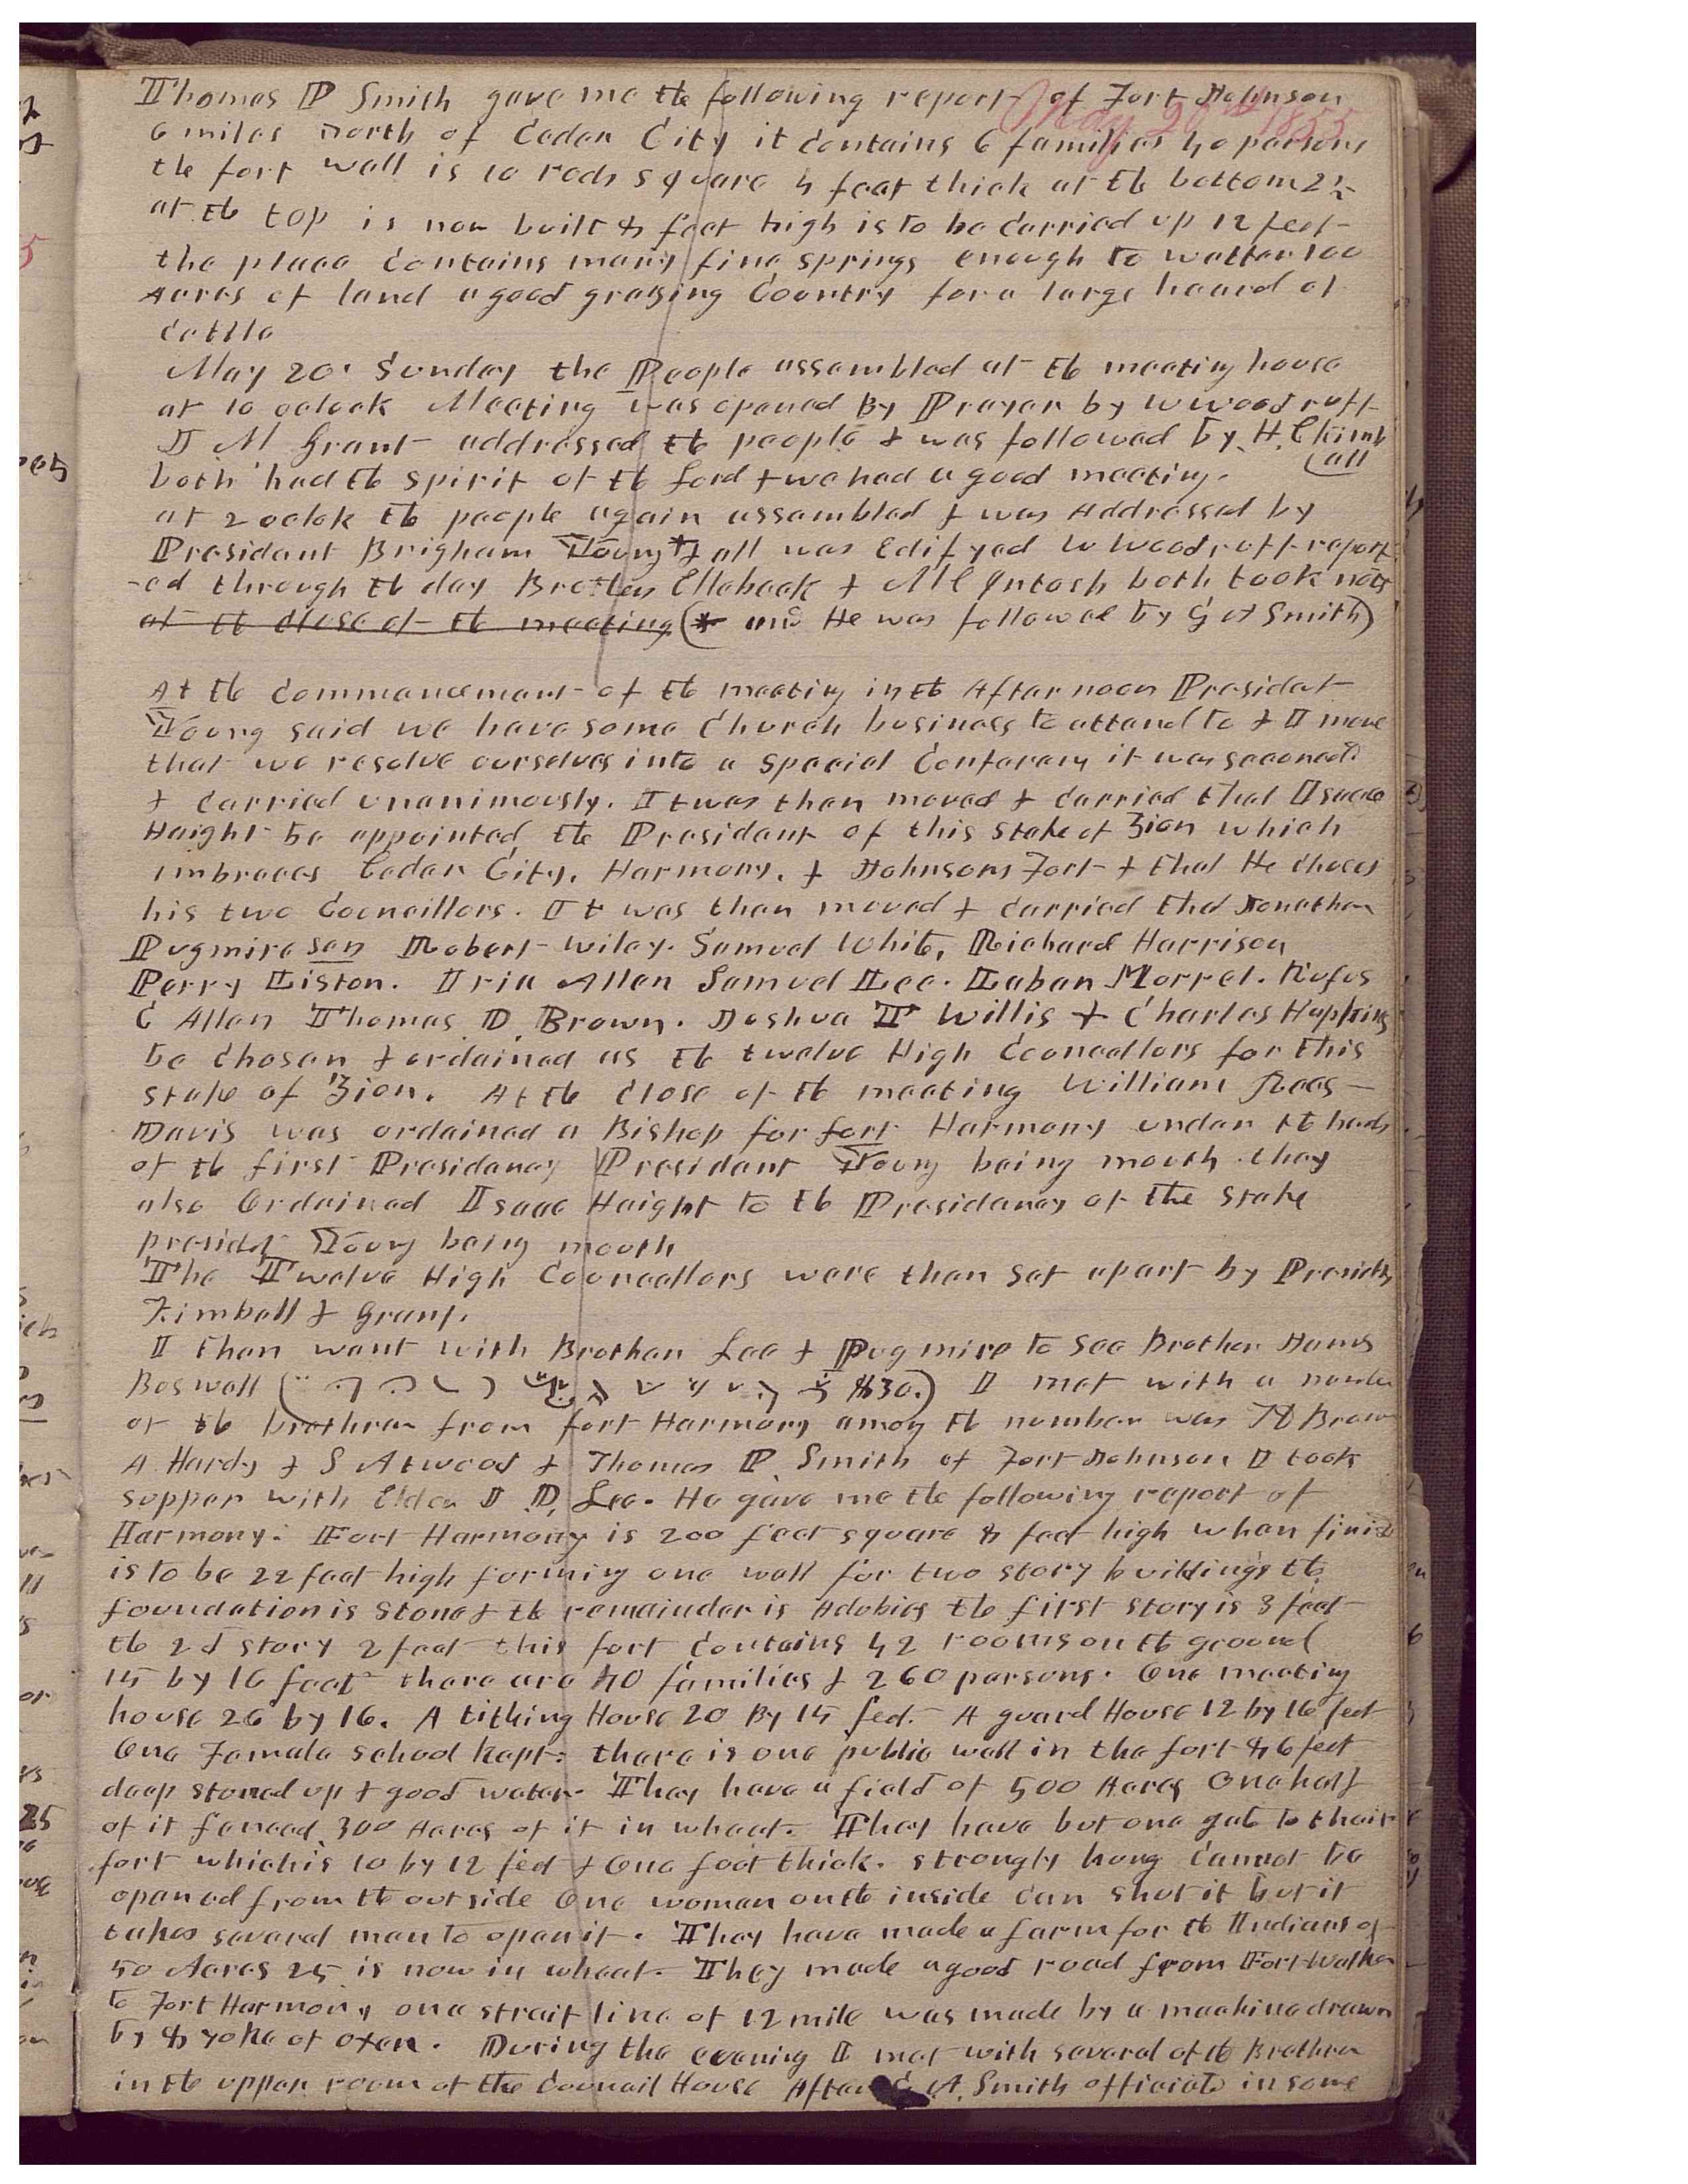 May 20th 1855
Thomas P Smith gave me the following report of Fort Johnson
6 miles North of Cedar City it contains 6 families 40 persons
the fort wall is 10 rods square 4 feet thick at the bottom 2½
at the top is now built 8 feet high is to be carried up 12 feet
the place contains many fine springs enough to watter 100
Acres of land a good grazing Country for a large heard of
cattle
May 20. Sunday the People assembled at the meeting house
at 10 oclock Meeting was opened By Prayer by W Woodruff
J M Grant addressed the people & was followed by H. C Kimb
all
both had the spirit of the Lord & we had a good meeting.
at 2 oclok the people again assembled & was Addressed by
President Brigham Young * & all was Edifyed W Woodruff report
-ed through the day Brothers Ellebeck & McIntosh both took nots
at the close of the meeting (* and He was followed by G A Smith)
At the commencement of the meeting in the Afternoon Presidet
Young said we have some Church business to attend to & I move
that we resolve ourselves into a special Conferency it was seconed
& carried unanimously. It was then moved & carried that Isaac
Haight be appointed the President of this Stake of Zion which
imbraces Cedar City, Harmony, & Johnsons Fort & that He choos
his two Councillors. It was then moved & carried that Jonathan
Pugmire sen Robert Wiley. Samuel White, Richard Harrison
Perry Liston. Iria Allen Samuel Lee. Laban Morrel. Rufus
C Allen Thomas D Brown. Joshua T Willis & Charles Hopkins
be chosen & ordained as the twelve High Councellors for this
stake of Zion. At the close of the meeting William Rees
Davis was ordained a Bishop for fort Harmony under the hands
of the first Presidency President Young being mouth. they
also Ordained Isaac Haight to the Presidency of the Stake
presidet Young being mouth
The Twelve High Councellors were then set apart by Presidts
Kimball & Grant.
I then went with Brother Lee & Pugmire to see Brother James
Boswell ( $30.) I met with a number
of the brethren from fort Harmony among the number was T D Brown
A Hardy & S Atwood & Thomas P. Smith of Fort Johnson I took
supper with Elder J D, Lee. He gave me the following report of
Harmony: Fort Harmony is 200 feet square 8 feet high when finis
is to be 22 feet high forming one wall for two story buildings the
foundation is Stone & the remainder is Adobies the first story is 3 feet
the 2d story 2 feet this fort contains 42 rooms on the ground
15 by 16 feet there are 40 families & 260 persons. One meeting
house 26 by 16. A tithing House 20 By 15 feet. A guard House 12 by 16 feet
One Female school kept. there is one public well in the fort 86 feet
deep stoned up & good water. They have a field of 500 Acres One half
of it fenced 300 Acres of it in wheat. They have but one gate to their
fort which is 10 by 12 feet & One foot thick. strongly hung cannot be
opened from the out side One woman on the inside can shut it but it
takes several men to open it. They have made a farm for the Indians of
50 Acres 25 is now in wheat. They made a good road from Fort Walker
to Fort Harmony on a strait line of 12 mile was made by a machine drawn
by 8 yoke of oxen. During the evening I met with several of the Brethren
in the upper room of the Council House After G. A. Smith officiate in some